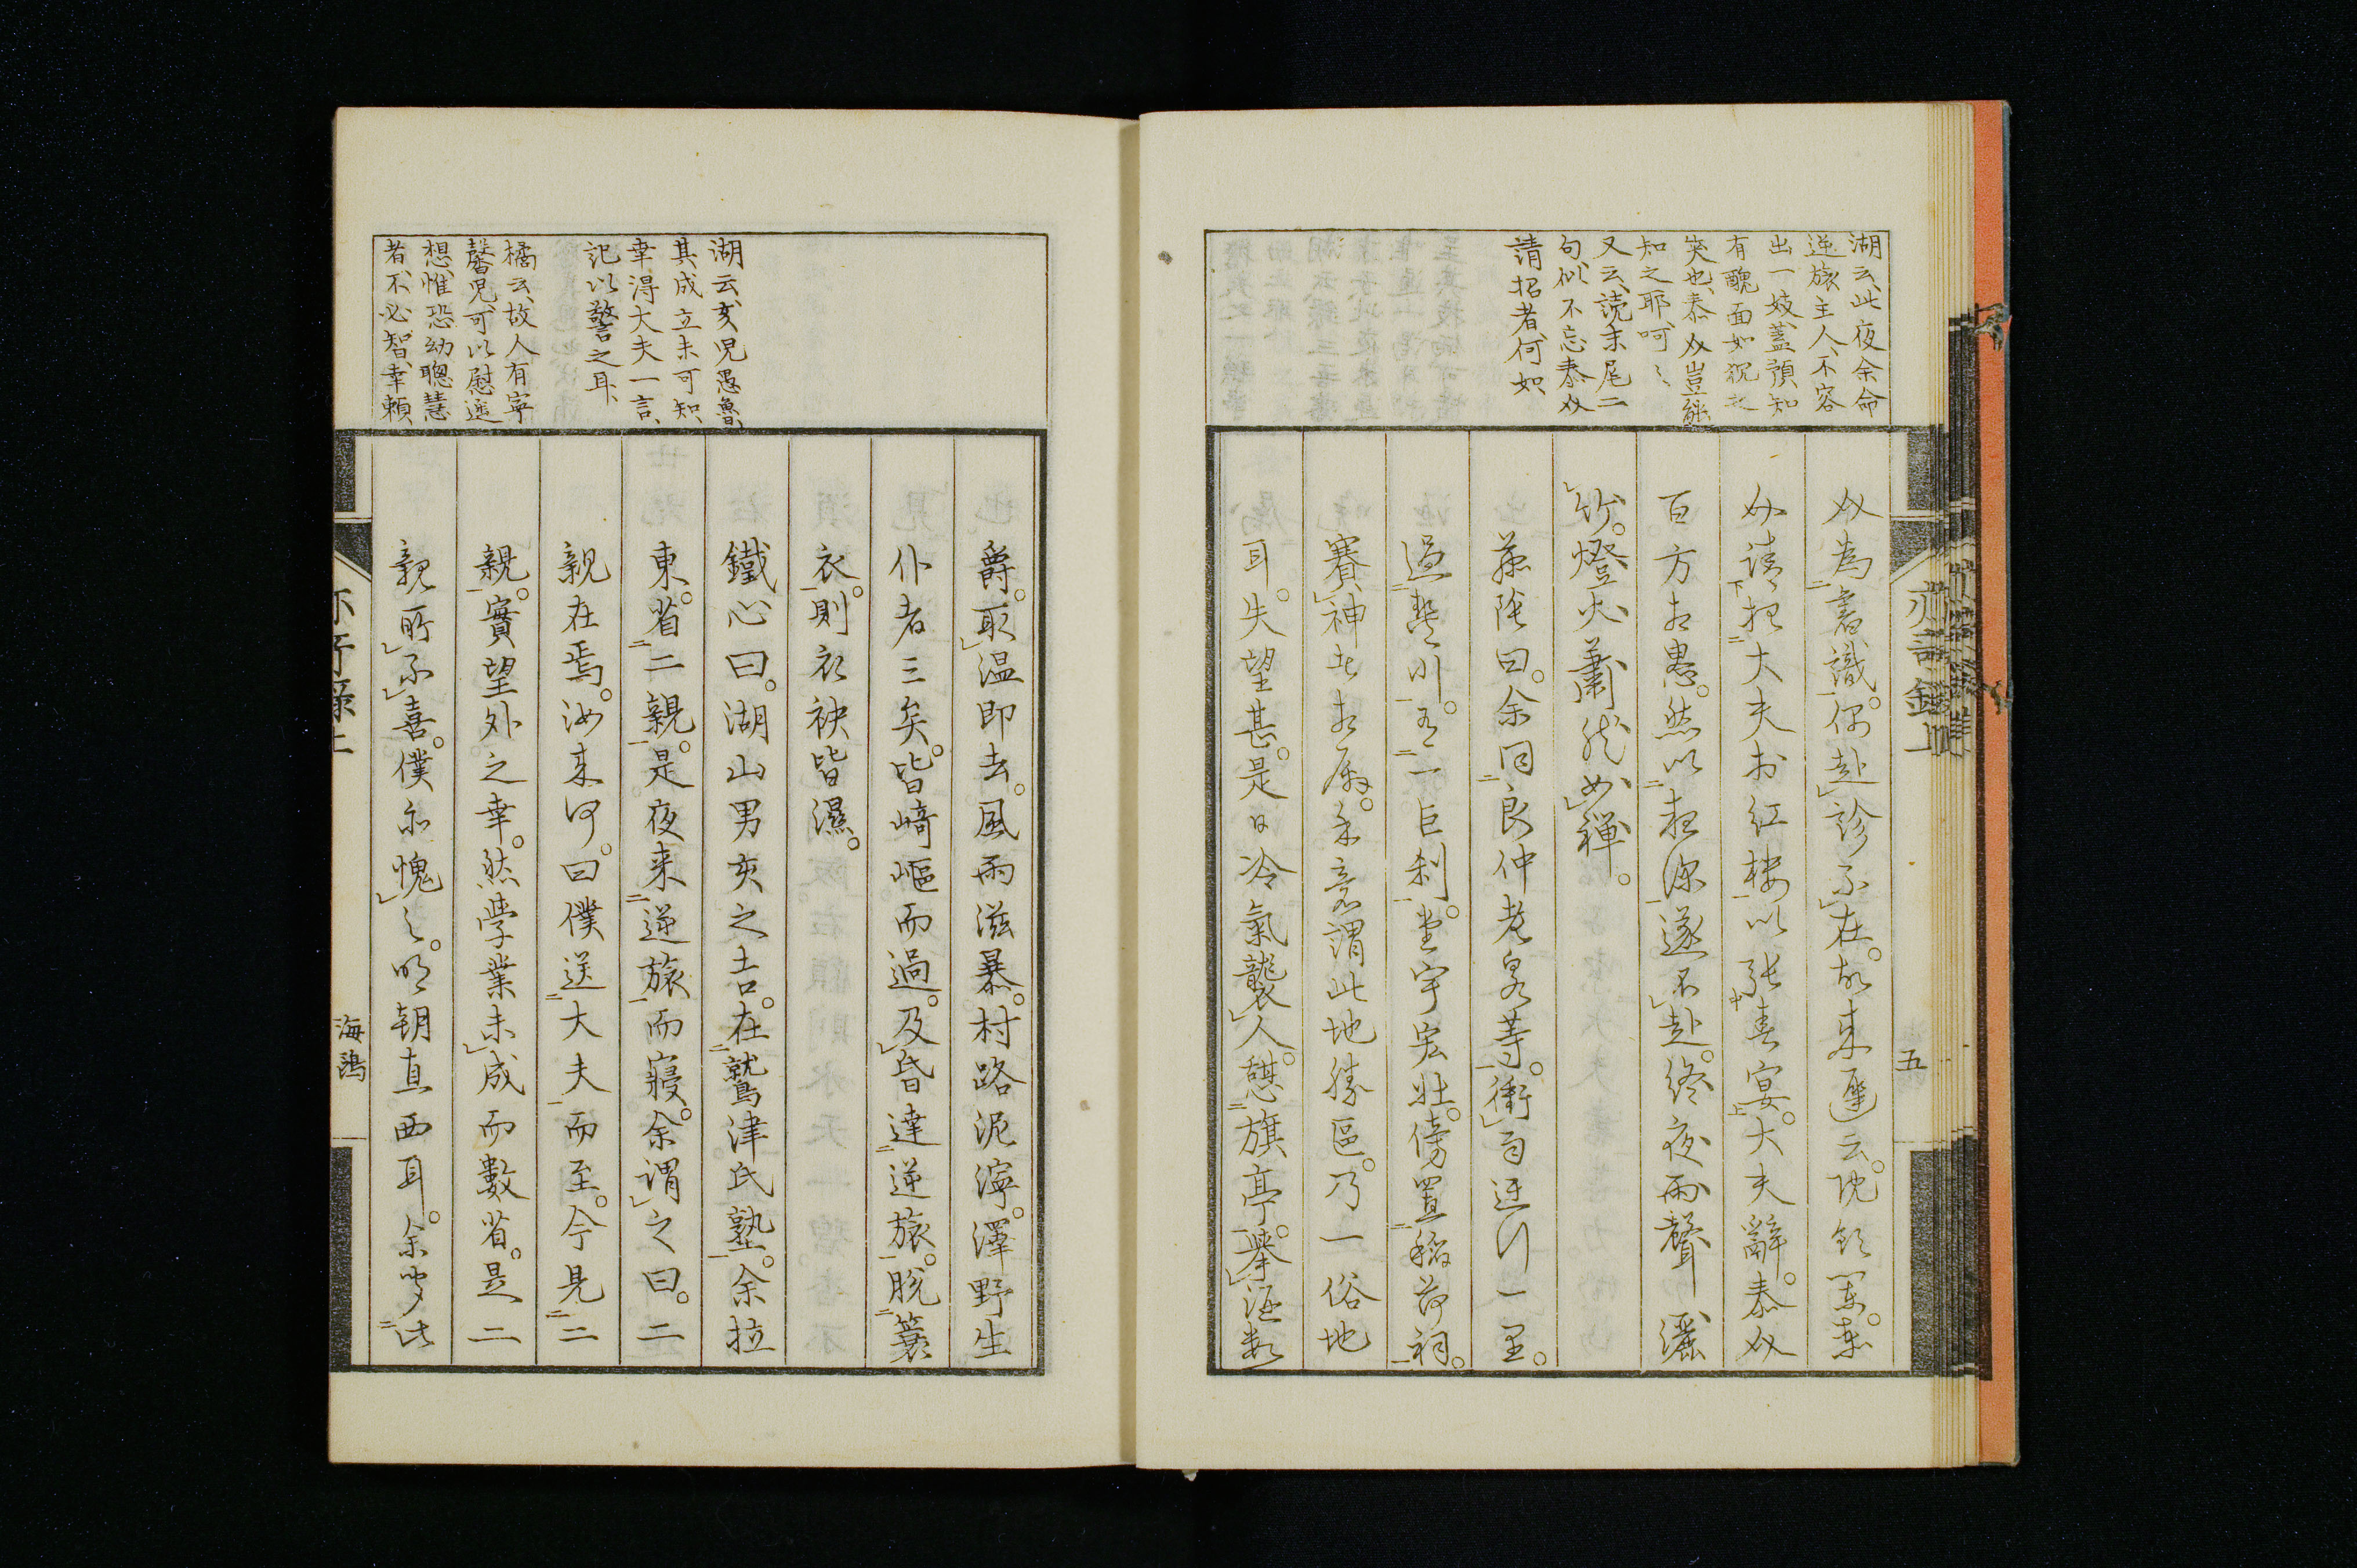 湖云、此夜余命
逆旅主人、不容
出一妓、蓋預知
有醜面如猊之
突也、泰奴豈能
知之耶、呵〻
又云、読末尾二
句、似不忘泰奴
請招者、何如
奴為書識。偶赴診不在。故来遅云。
奴請招大夫於紅楼以張春宴。大夫辞。泰奴
百方相愚。然以夜深遂不赴。終夜雨声灑
竹。燈火蕭然如禅。
余同良仲老泉等。衝雨迂行一里。
過豊川。有一巨刹。堂宇宏壮。傍置稲荷祠。
賽神者相属。余意謂此地勝區。乃一俗地
耳。失望甚。是日冷氣襲人。憩旗亭。挙酒数
五
爵。取温即去。風雨滋暴。村路泥濘。澤野生
仆者三矣。皆﨑嶇而過。及昏達逆旅。脱簑
衣。則衣袂皆濕。
鐵心曰。湖山男亥之吉。在鷲津氏塾。余拉
東。省二親。是夜来逆旅而寝。余謂之曰。二
親在焉。汝来何。曰僕送大夫而至。今見二
親。實望外之幸。然学業未成而數省。是二
親所不喜。僕亦愧之。明朝直西耳。余聞此
湖云、亥児愚魯、
其成立未可知、
幸得大夫一言、
記以警之耳、
橘云、故人有寧
馨児、可以慰遥
想、惟恐幼聰慧
者、不必智、幸頼
海鴎